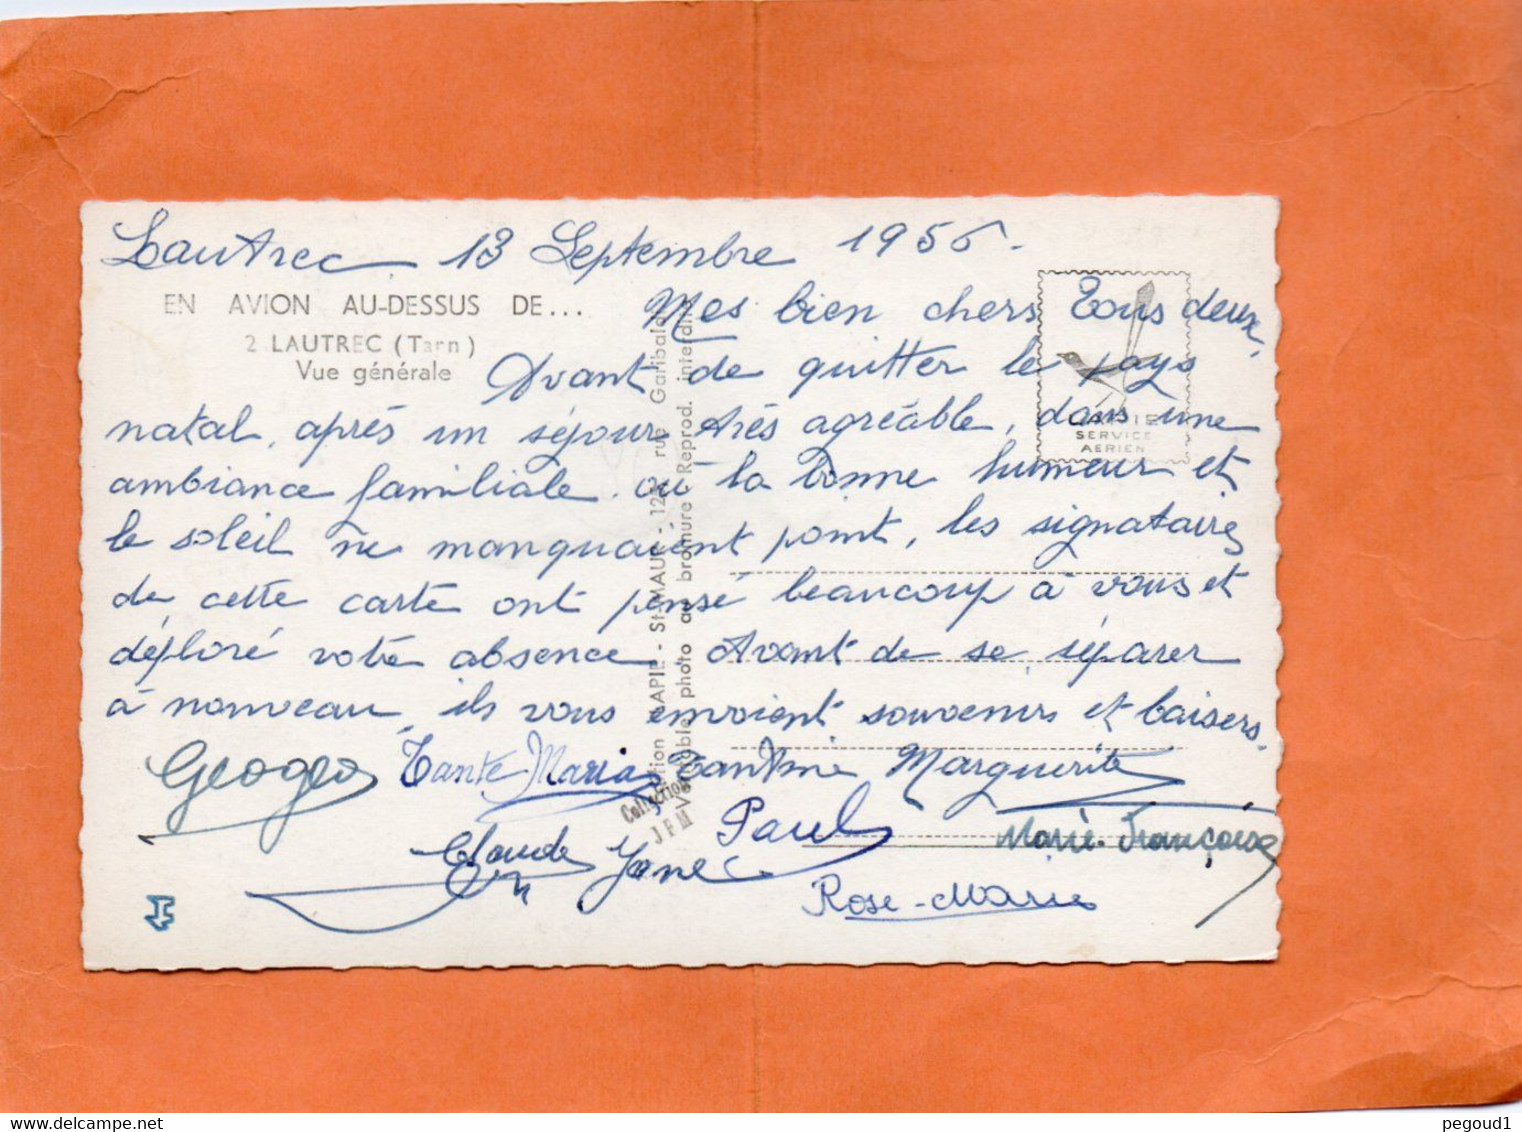 Lautrec 13 Septembre 1956.
EN AVION AU-DESSUS DE...
2 LAUTREC (Tarn)
Vue générale
Mes bien chers Tous deux,
Avant de quitter le pays
natal, après un séjour très agréable, dans une
ambiance familiale où la bonne humeur et
le soleil ne manquaient point, les signataires
de cette carte ont pensé beaucoup à vous et
déploré votre absence. Avant de se séparer
à nouveau, ils vous envoient souvenirs et baisers.
Georges Tante Maria Tantine Marguerite
Claude Paul Marie-Françoise
Rose-Marie
LAPIE
SERVICE
AERIEN
Collection LAPIE - St-MAUR - rue Garibaldi
Véritable photo au bromure - Reprod. interdite
Collection
J F M
pegoud1